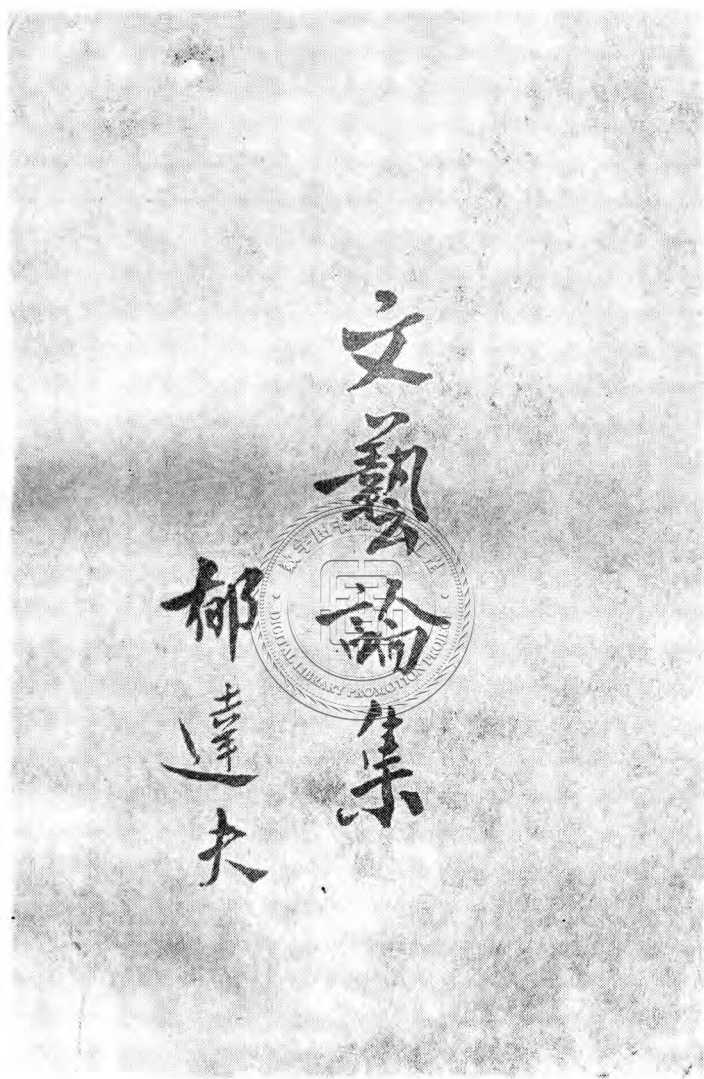 文藝論集
郁達夫
數字圖書館推廣工程
DIGITAL LIBRARY PROMOTION PROJECT